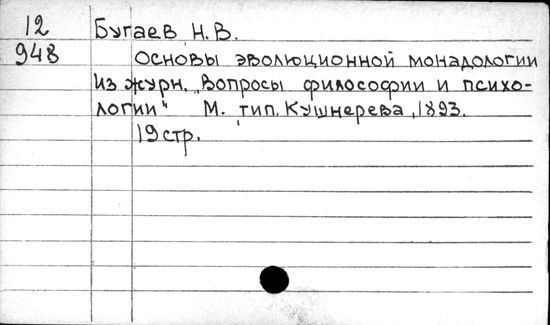 12 Бугаев Н. В.
948 Основы эволюционной монадологии
Из журн. „Вопросы философии и психо-
логии" М. тип. Кушнерева, 1893.
19 стр.